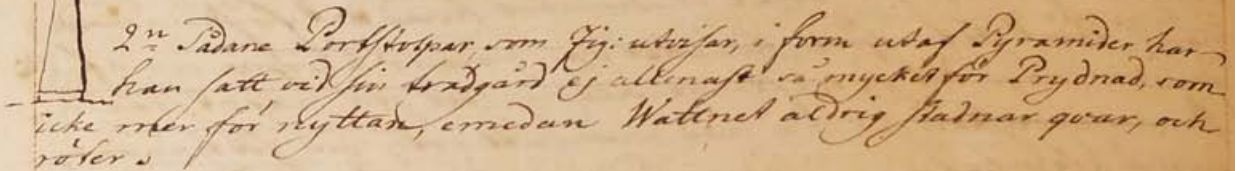 2ⁿ Sådane Portstolpar, som Fig: utvisar, i form utaf Pyramider har
han satt vid sin trädgård ej allenast så mycket för Prydnad, som
icke mer för nyttan, emedan Wattnet aldrig stadnar qvar, och
röter.